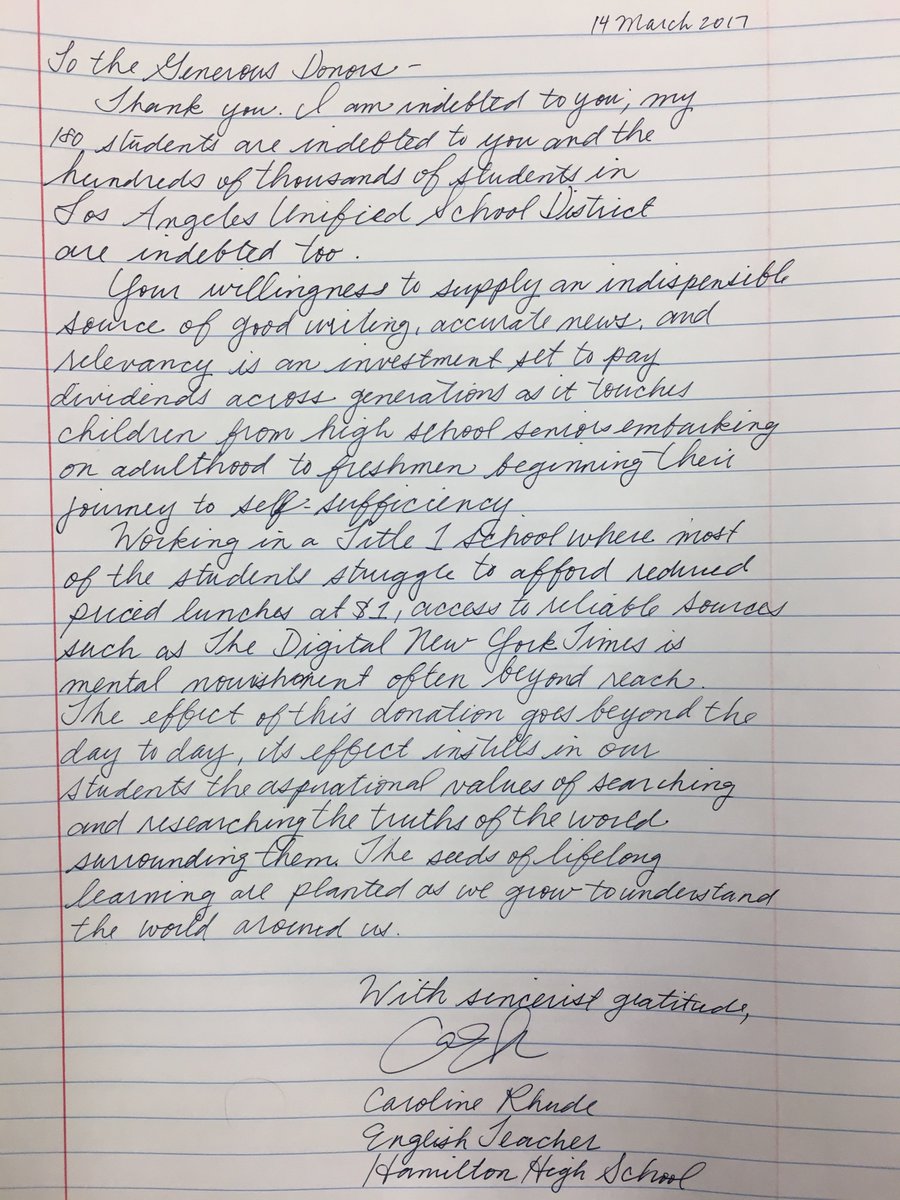 14 March 2017
To the Generous Donors -
Thank you. I am indebted to you, my
180 students are indebted to you and the
hundreds of thousands of students in
Los Angeles Unified School District
are indebted too.
Your willingness to supply an indispensible
source of good writing, accurate news, and
relevancy is an investment set to pay
dividends across generations as it touches
children from high school seniors embarking
on adulthood to freshmen beginning their
journey to self-sufficiency.
Working in a Title 1 School where most
of the students struggle to afford reduced
priced lunches at $1, access to reliable sources
such as The Digital New York Times is
mental nourishment often beyond reach.
The effect of this donation goes beyond the
day to day, its effect instills in our
students the aspirational values of searching
and researching the truths of the world
surrounding them. The seeds of lifelong
learning are planted as we grow to understand
the world around us.
With sincerist gratitude,
Caroline Rhude
English Teacher
Hamilton High School